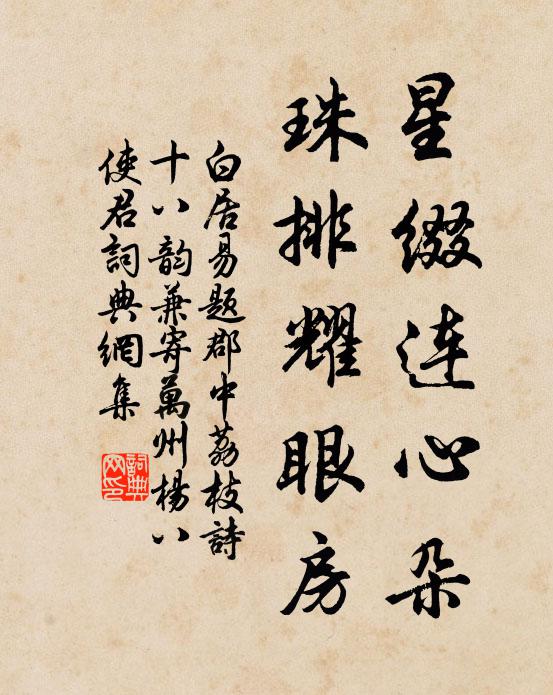 星缀连心朵
珠排耀眼房
白居易题郡中荔枝詩
十八韵兼寄萬州楊八
使君詞典網集
詞典
网印